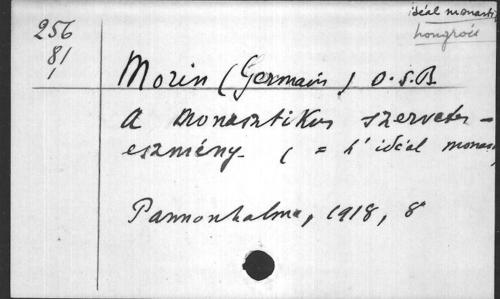 idéal monasti
hongrois
256
81
1
Morin (Germain) O.S.B.
A monasztikus szervetes-
eszmény. ( = L'idéal monas
Pannonhalma, 1918, 8°